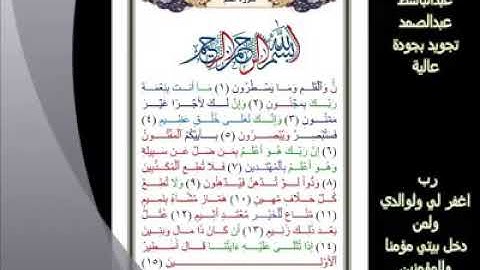 عبدالباسط
عبدالصمد
تجويد بجودة
عالية
بسم الله الرحمن الرحيم
نٓ وَالْقَلَمِ وَمَا يَسْطُرُونَ (١) مَا أَنتَ بِنِعْمَةِ
رَبِّكَ بِمَجْنُونٍ (٢) وَإِنَّ لَكَ لَأَجْرًا غَيْرَ
مَمْنُونٍ (٣) وَإِنَّكَ لَعَلَى خُلُقٍ عَظِيمٍ (٤)
فَسَتُبْصِرُ وَيُبْصِرُونَ (٥) بِأَييِّكُمُ الْمَفْتُونُ
(٦) إِنَّ رَبَّكَ هُوَ أَعْلَمُ بِمَن ضَلَّ عَن سَبِيلِهِ
وَهُوَ أَعْلَمُ بِالْمُهْتَدِينَ (٧) فَلَا تُطِعِ الْمُكَذِّبِينَ
(٨) وَدُّوا لَوْ تُدْهِنُ فَيُدْهِنُونَ (٩) وَلَا تُطِعْ
كُلَّ حَلَّافٍ مَّهِينٍ (١٠) هَمَّازٍ مَّشَّاءٍ بِنَمِيمٍ
(١١) مَنَّاعٍ لِّلْخَيْرِ مُعْتَدٍ أَثِيمٍ (١٢) عُتُلٍّ
بَعْدَ ذَلِكَ زَنِيمٍ (١٣) أَن كَانَ ذَا مَالٍ وَبَنِينَ
(١٤) إِذَا تُتْلَى عَلَيْهِ ءَايَاتُنَا قَالَ أَسَاطِيرُ
الْأَوَّلِينَ (١٥)
رب
اغفر لي ولوالدي
ولمن
دخل بيتي مؤمنا
وللمؤمنين